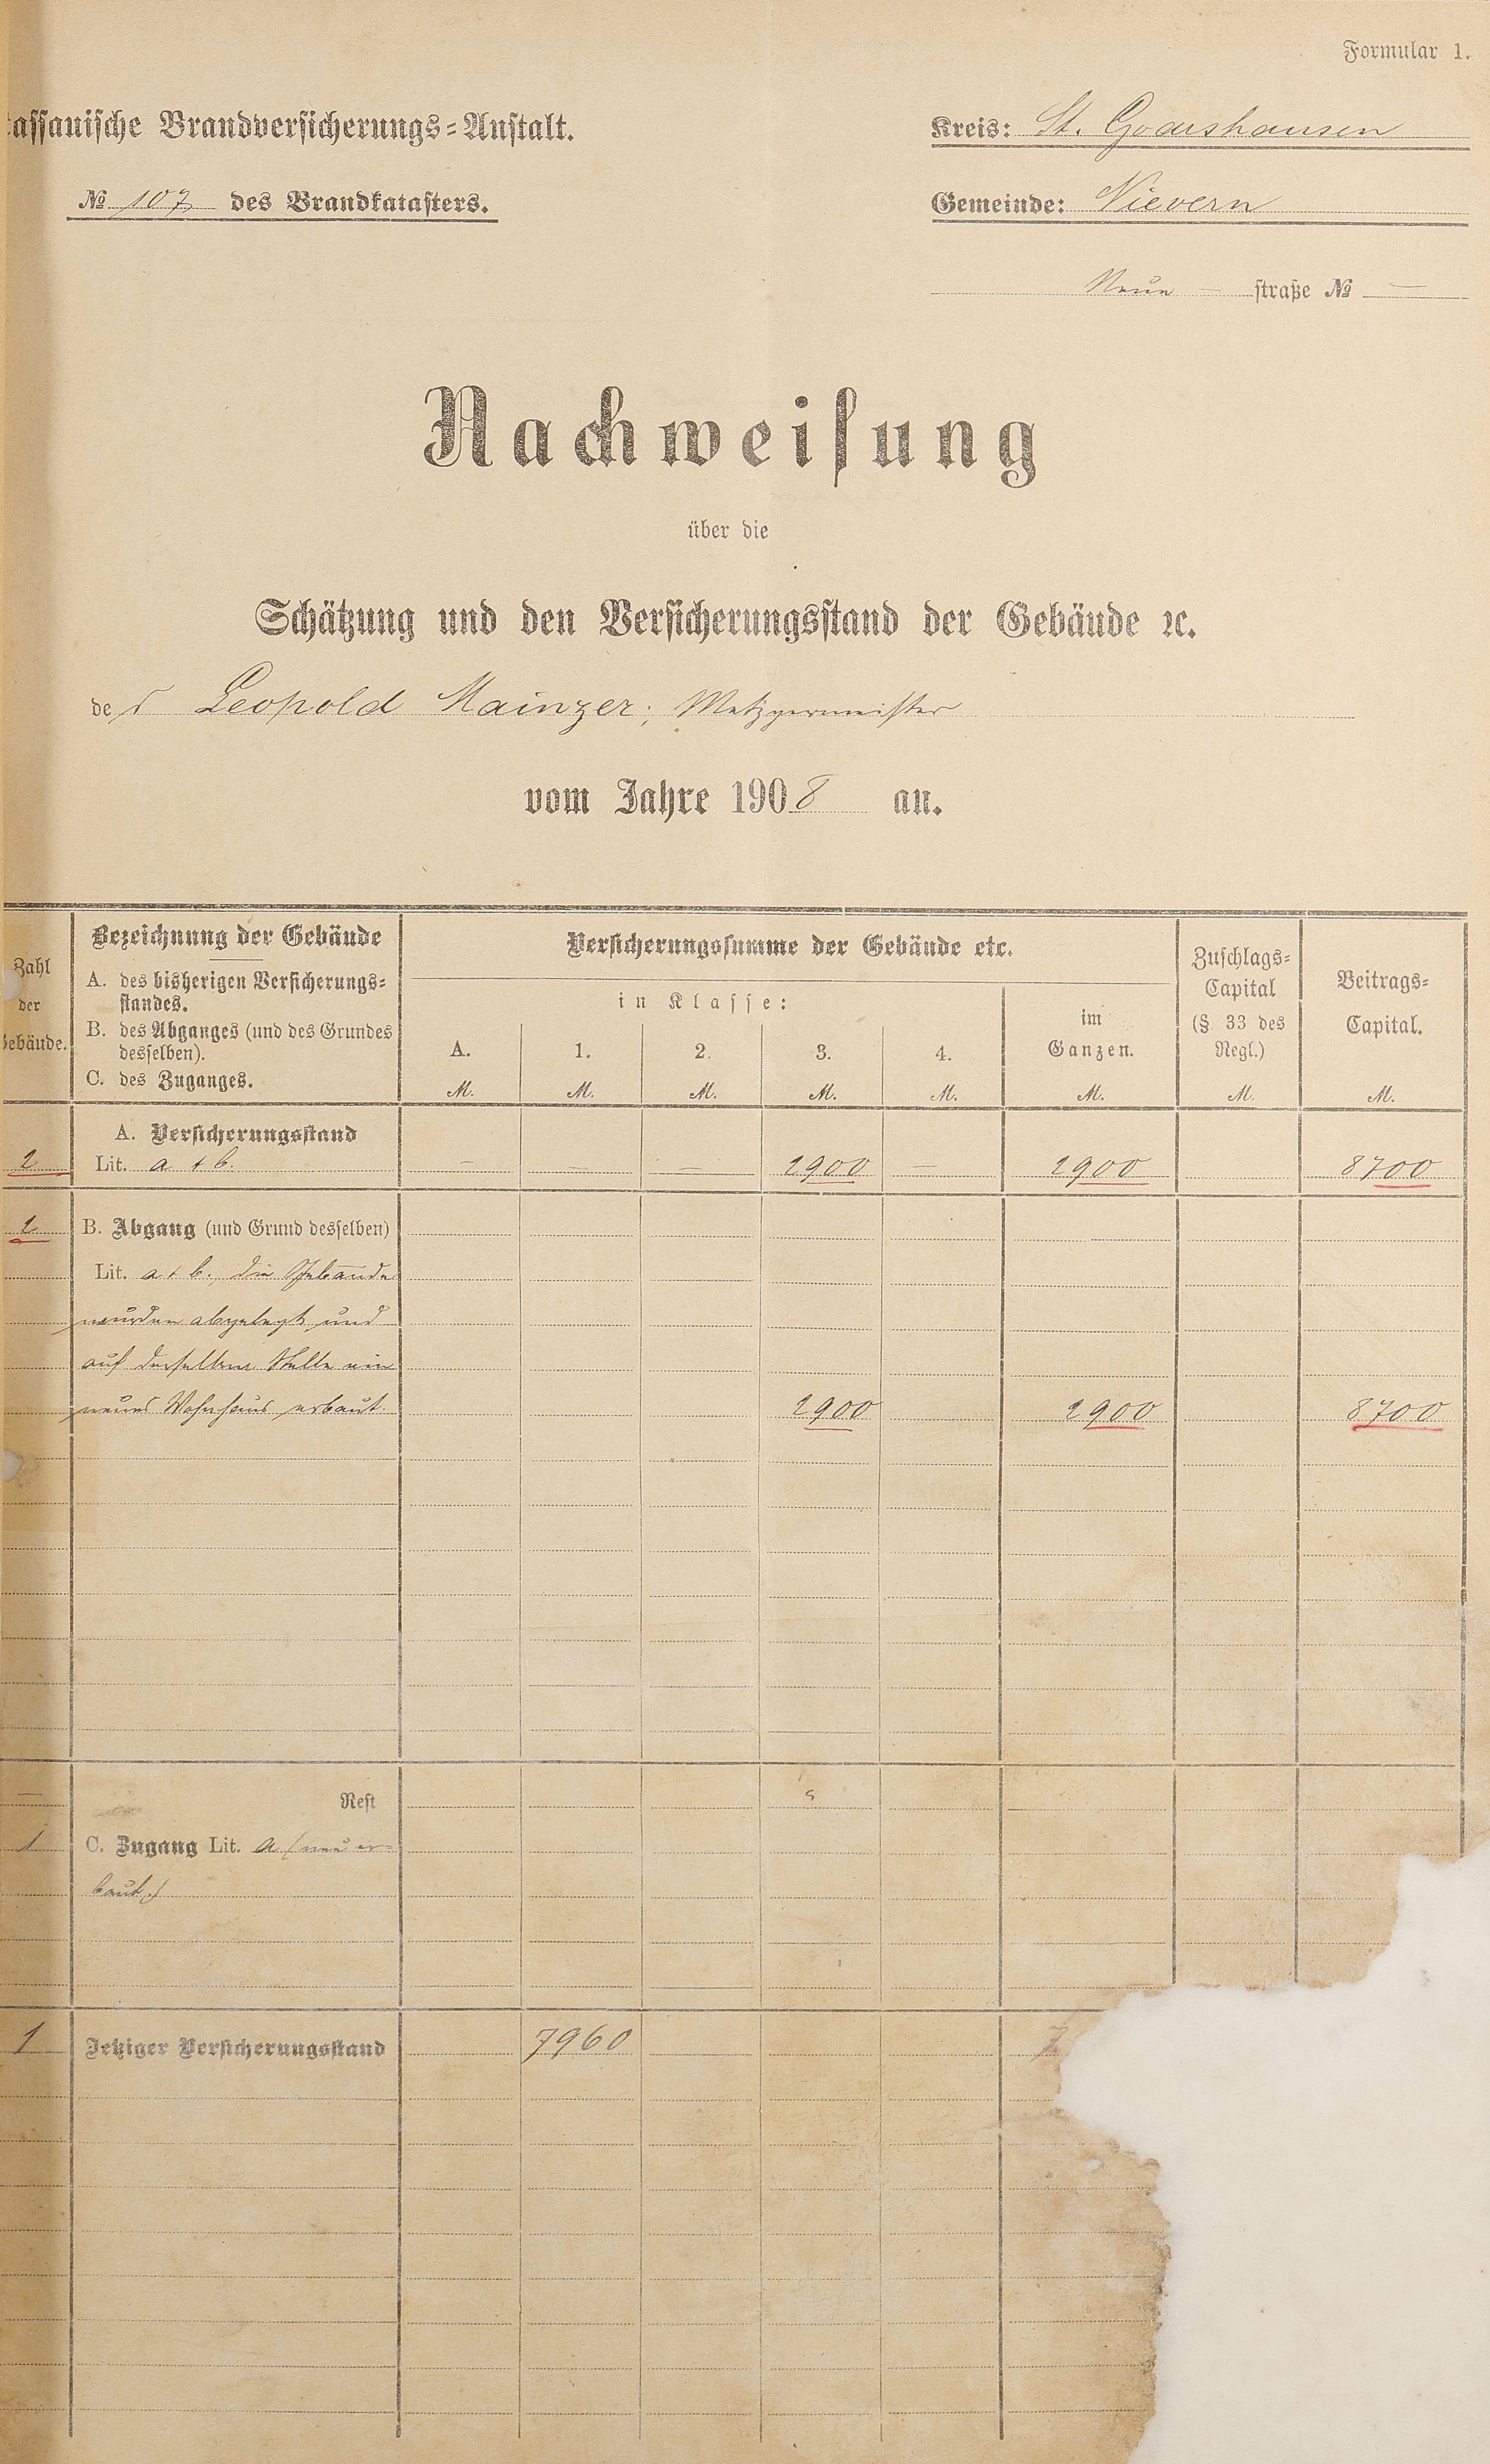 Formular 1.
assauische Brandversicherungs=Anstalt.
Kreis: St. Goarshausen
№ 107 des Brandkatasters.
Gemeinde: Nievern
Neue — straße № —
Nachweisung
über die
Schätzung und den Versicherungsstand der Gebäude ꝛc.
der Leopold Mainzer, Metzgermeister
vom Jahre 1908 an.
Zahl der Gebäude.
Bezeichnung der Gebäude
A. des bisherigen Versicherungs=
standes.
B. des Abganges (und des Grundes
desselben).
C. des Zuganges.
Versicherungssumme der Gebäude etc.
in Klasse:
A. 1. 2. 3. 4.
im
Ganzen.
Zuschlags=
Capital
(§ 33 des
Regl.)
Beitrags=
Capital.
M. M. M. M. M. M. M. M.
A. Versicherungsstand
2 Lit. a + b. — — — 2900 — 2900 8700
2 B. Abgang (und Grund desselben)
Lit. a + b., die Gebäude
wurden abgelegt und
auf derselben Stelle ein
neues Wohnhaus erbaut. 2900 2900 8700
— Rest
1 C. Zugang Lit. a (neu er=
baut.)
1 Jetziger Versicherungsstand 7960 7